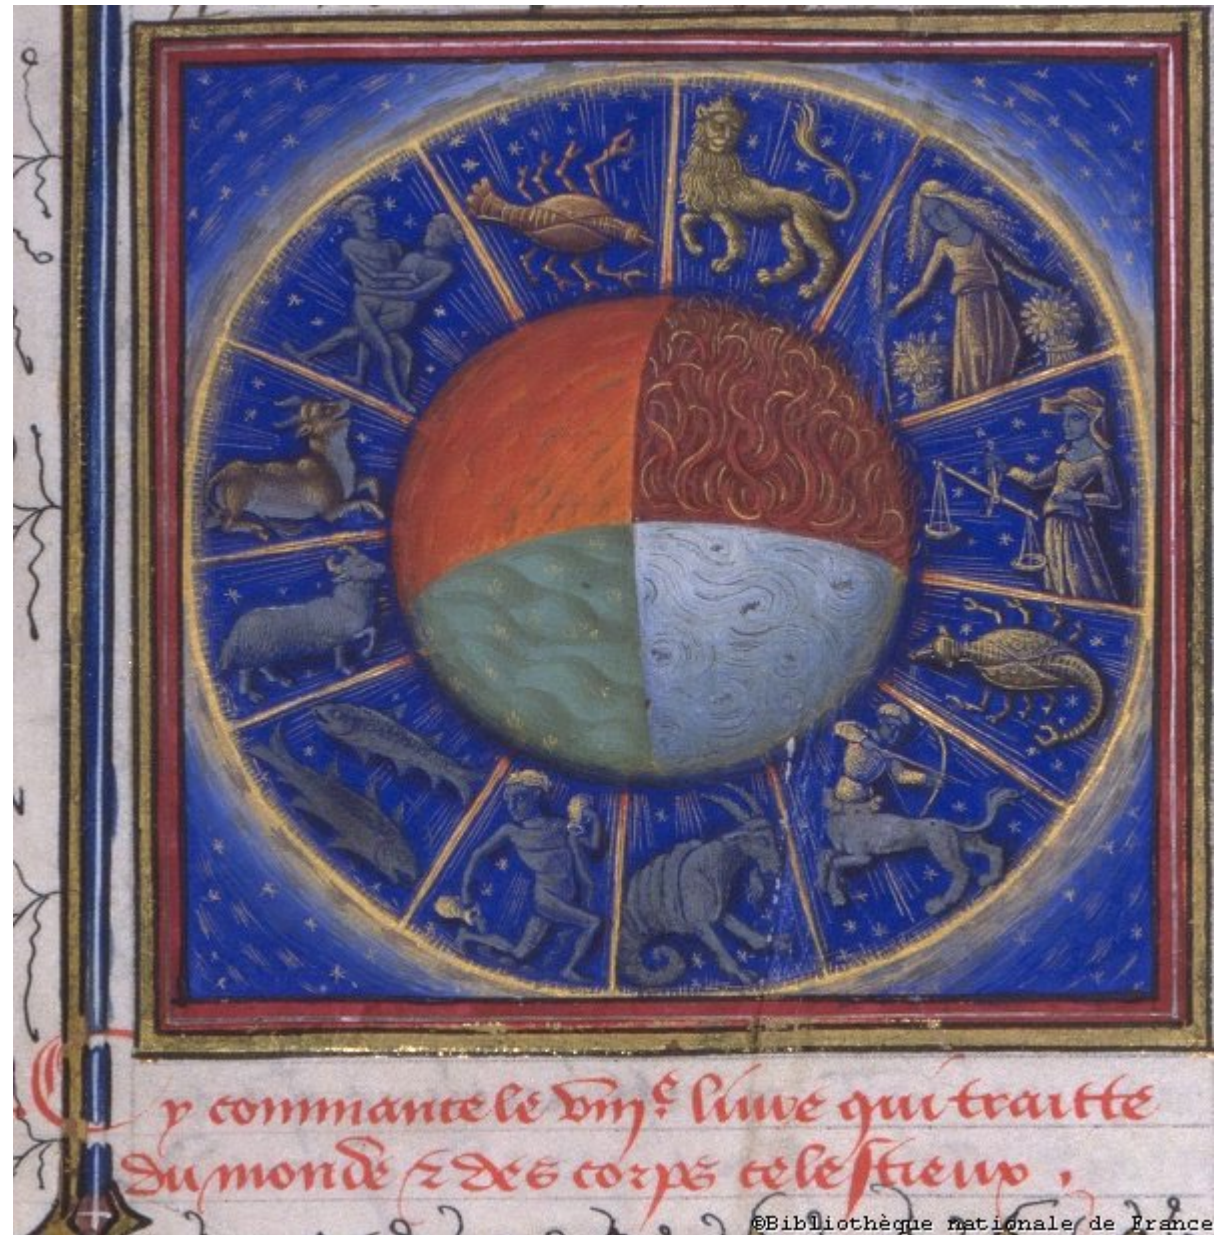 Cy commance le viiie liure qui traitte
du monde & des corps celestieux.
©Bibliothèque nationale de France